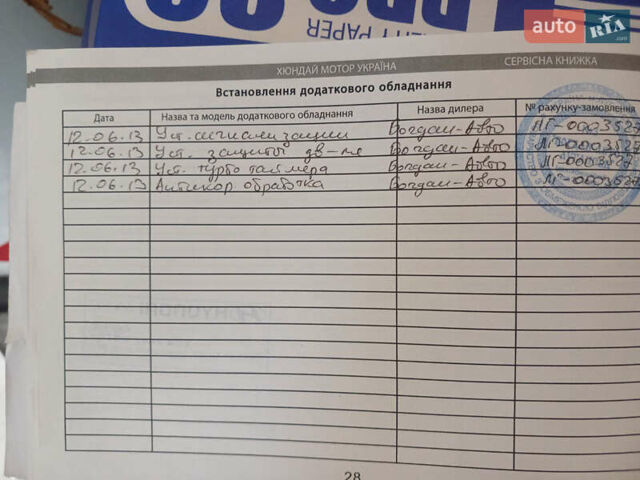 auto RIA .com
TY PAPER
ХЮНДАЙ МОТОР УКРАЇНА СЕРВІСНА КНИЖКА
Встановлення додаткового обладнання
Дата Назва та модель додаткового обладнання Назва дилера № рахунку-замовлення
12.06.13 Уст. сигнализации Богдан-Авто ЛГ-0003527
12.06.13 Уст. защиты дв-ля Богдан-Авто ЛГ-0003527
12.06.13 Уст. турбо таймера Богдан-Авто ЛГ-0003527
12.06.13 Антикор обработка Богдан-Авто ЛГ-0003527
28